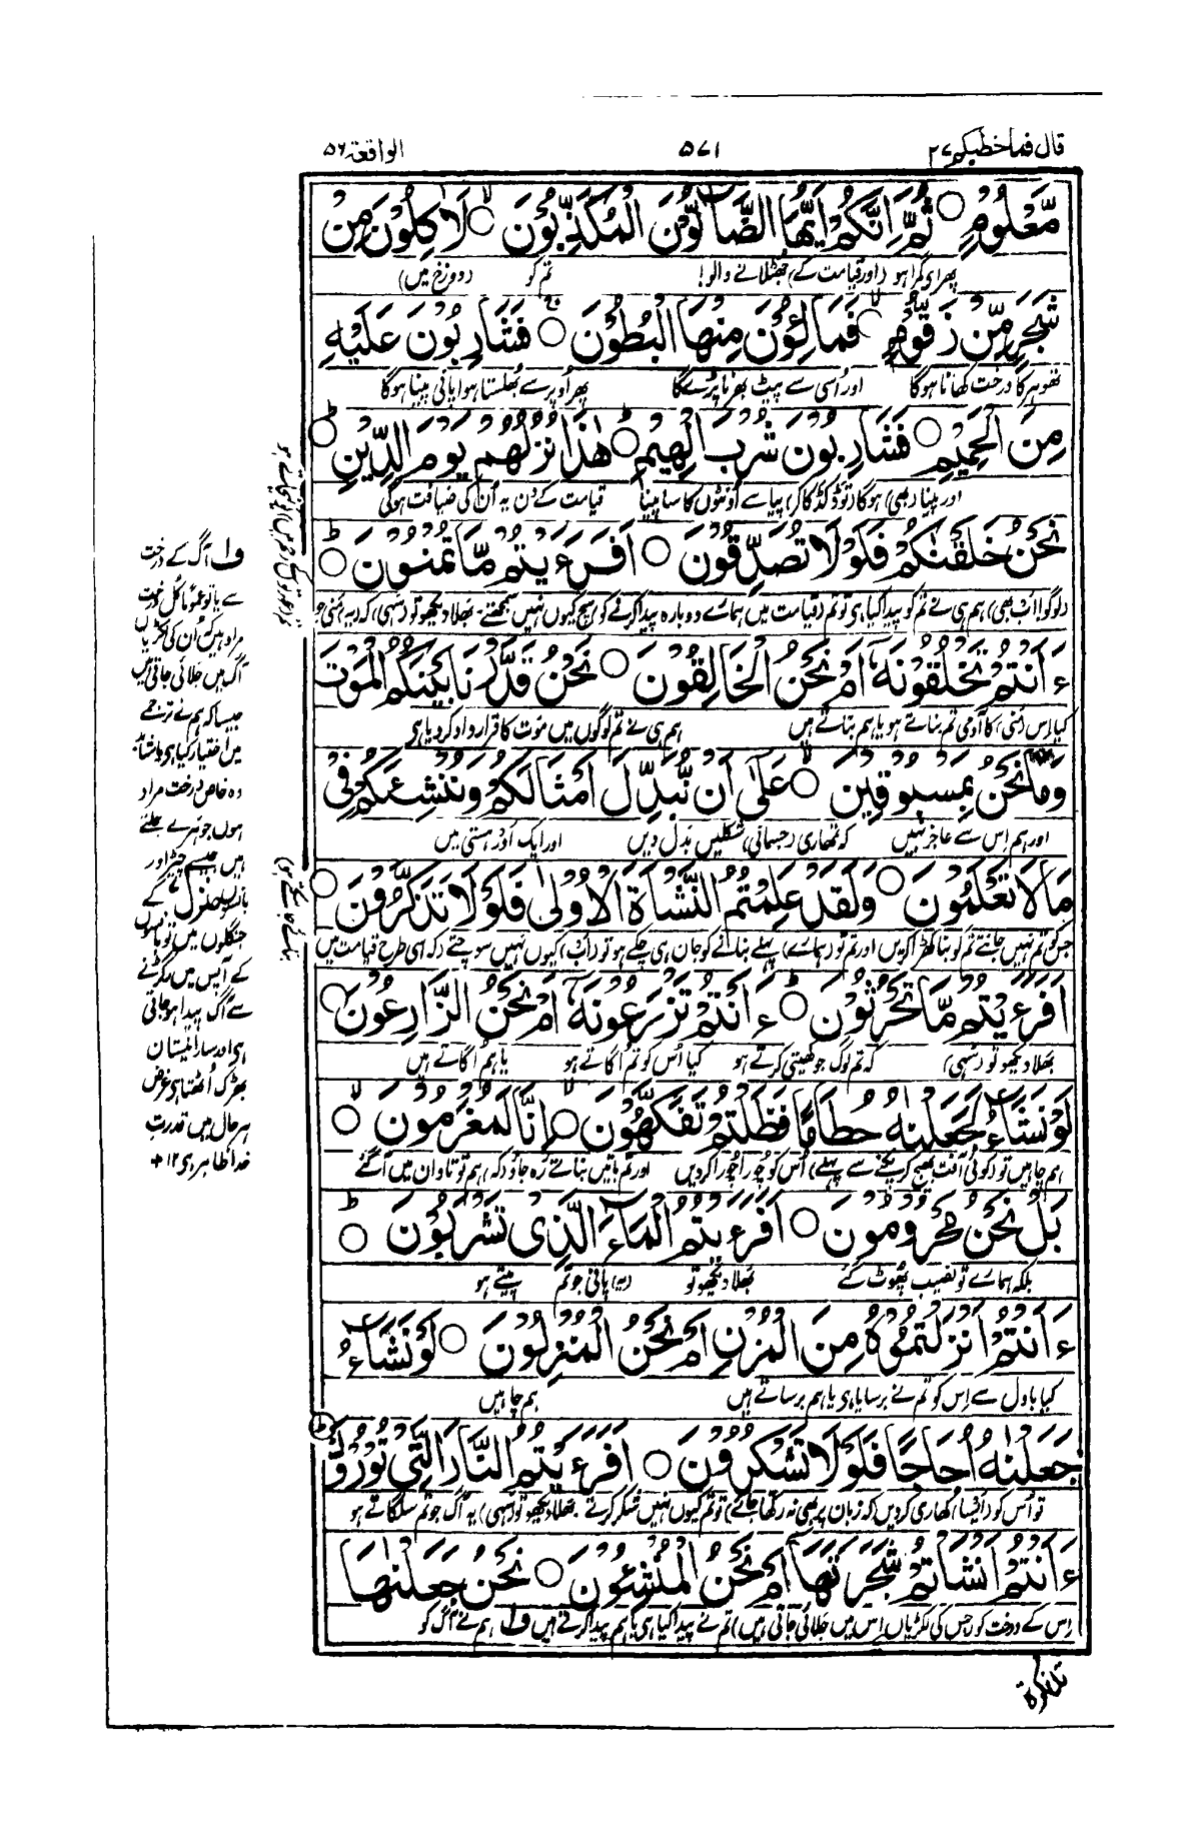 قال فما خطبكم ٢٧
٥٧١
الواقعة ٥٦
مَّعْلُوْمٍ ○ ثُمَّ اِنَّكُمْ اَيُّهَا الضَّآلُّوْنَ الْمُكَذِّبُوْنَ ○ لَاٰكِلُوْنَ مِنْ
پھر اے گمراہو (اور قیامت کے) جھٹلانے والو! تم کو (دوزخ میں)
شَجَرٍ مِّنْ زَقُّوْمٍ ○ فَمَالِـُٔوْنَ مِنْهَا الْبُطُوْنَ ○ فَشَارِبُوْنَ عَلَيْهِ
تھوہر کا درخت کھانا ہوگا اور اُسی سے پیٹ بھرنا پڑے گا پھر اُوپر سے جُھلستا ہوا پانی پینا ہوگا
مِنَ الْحَمِيْمِ ○ فَشَارِبُوْنَ شُرْبَ الْهِيْمِ ○ هٰذَا نُزُلُهُمْ يَوْمَ الدِّيْنِ ○
اور پینا (بھی) ہوگا (تو ڈگڈگا کر) پیاسے اُونٹوں کا سا پینا قیامت کے دن یہ اُن کی ضیافت ہوگی
نَحْنُ خَلَقْنٰكُمْ فَلَوْ لَا تُصَدِّقُوْنَ ○ اَفَرَءَيْتُمْ مَّا تُمْنُوْنَ ○
(لوگو! اب بھی) ہم ہی نے تم کو پیدا کیا ہے تو تم (قیامت میں ہمارے دوبارہ پیدا کرنے کو) سچ کیوں نہیں سمجھتے۔ بھلا دیکھو تو (سہی) کہ (یہ) منی جو
ءَاَنْتُمْ تَخْلُقُوْنَهٗٓ اَمْ نَحْنُ الْخَالِقُوْنَ ○ نَحْنُ قَدَّرْنَا بَيْنَكُمُ الْمَوْتَ
کیا اِس (منی) کا آدمی تم بناتے ہو یا ہم بناتے ہیں ہم ہی نے تم لوگوں میں موت کا قرارداد کر دیا ہے
وَمَا نَحْنُ بِمَسْبُوْقِيْنَ ○ عَلٰٓى اَنْ نُّبَدِّلَ اَمْثَالَكُمْ وَنُنْشِئَكُمْ فِيْ
اور ہم اِس سے عاجز نہیں کہ تمھاری (جسمانی) شکلیں بدل دیں اور ایک اَوْر ہستی میں
مَا لَا تَعْلَمُوْنَ ○ وَلَقَدْ عَلِمْتُمُ النَّشْاَةَ الْاُوْلٰى فَلَوْ لَا تَذَكَّرُوْنَ ○
جس کو تم نہیں جانتے تم کو بنا کھڑا کریں اور تم تو (ہمارے) پہلے بنانے کو جان ہی چکے ہو تو (اب) کیوں نہیں سوچتے (کہ اسی طرح قیامت میں
اَفَرَءَيْتُمْ مَّا تَحْرُثُوْنَ ○ ءَاَنْتُمْ تَزْرَعُوْنَهٗٓ اَمْ نَحْنُ الزَّارِعُوْنَ ○
بھلا دیکھو تو (سہی) کہ تم لوگ جو کھیتی کرتے ہو کیا اُس کو تم اُگاتے ہو یا ہم اُگاتے ہیں
لَوْ نَشَآءُ لَجَعَلْنٰهُ حُطَامًا فَظَلْتُمْ تَفَكَّهُوْنَ ○ اِنَّا لَمُغْرَمُوْنَ ○
ہم چاہیں تو (کوئی آفت بھیج کر پکنے سے پہلے) اُس کو چُورا چُورا کر دیں اور تم باتیں بناتے رہ جاؤ (کہ) ہم تو تاوان میں آ گئے
بَلْ نَحْنُ مَحْرُوْمُوْنَ ○ اَفَرَءَيْتُمُ الْمَآءَ الَّذِيْ تَشْرَبُوْنَ ○
بلکہ ہمارے تو نصیب پھوٹ گئے بھلا دیکھو تو (یہ) پانی جو تم پیتے ہو
ءَاَنْتُمْ اَنْزَلْتُمُوْهُ مِنَ الْمُزْنِ اَمْ نَحْنُ الْمُنْزِلُوْنَ ○ لَوْ نَشَآءُ
کیا بادل سے اِس کو تم نے برسایا ہے یا ہم برساتے ہیں ہم چاہیں
جَعَلْنٰهُ اُجَاجًا فَلَوْ لَا تَشْكُرُوْنَ ○ اَفَرَءَيْتُمُ النَّارَ الَّتِيْ تُوْرُوْنَ
تو اُس کو (ایسا) کھاری کر دیں کہ زبان پر بھی نہ رکھا جائے) تو تم کیوں نہیں شکر کرتے۔ بھلا دیکھو تو (سہی) یہ آگ جو تم سلگاتے ہو
ءَاَنْتُمْ اَنْشَاْتُمْ شَجَرَتَهَآ اَمْ نَحْنُ الْمُنْشِـُٔوْنَ ○ نَحْنُ جَعَلْنٰهَا
اِس کے درخت کو (جس کی لکڑیاں اِس میں جلائی جاتی ہیں) تم نے پیدا کیا ہے یا ہم پیدا کرتے ہیں ف۱ ہم نے آگ کو
تذكرة
ف۱ آگ کے درخت
سے یا تو عموماً کل درخت
مراد ہیں کہ اُن کی لکڑیاں
آگ میں جلائی جاتی ہیں
جیسا کہ ہم نے ترجمے
میں اختیار کیا ہے یا شاید
وہ خاص درخت مراد
ہوں جو ہرے جلتے
ہیں جیسے چیڑ اور
بانس
جنگلوں میں تو بانسوں
کے آپس میں رگڑنے
سے آگ پیدا ہو جاتی
ہے اور سارا نیستان
بھڑک اُٹھتا ہے غرض
ہر حال میں قدرتِ
خدا ظاہر ہے ۱۲